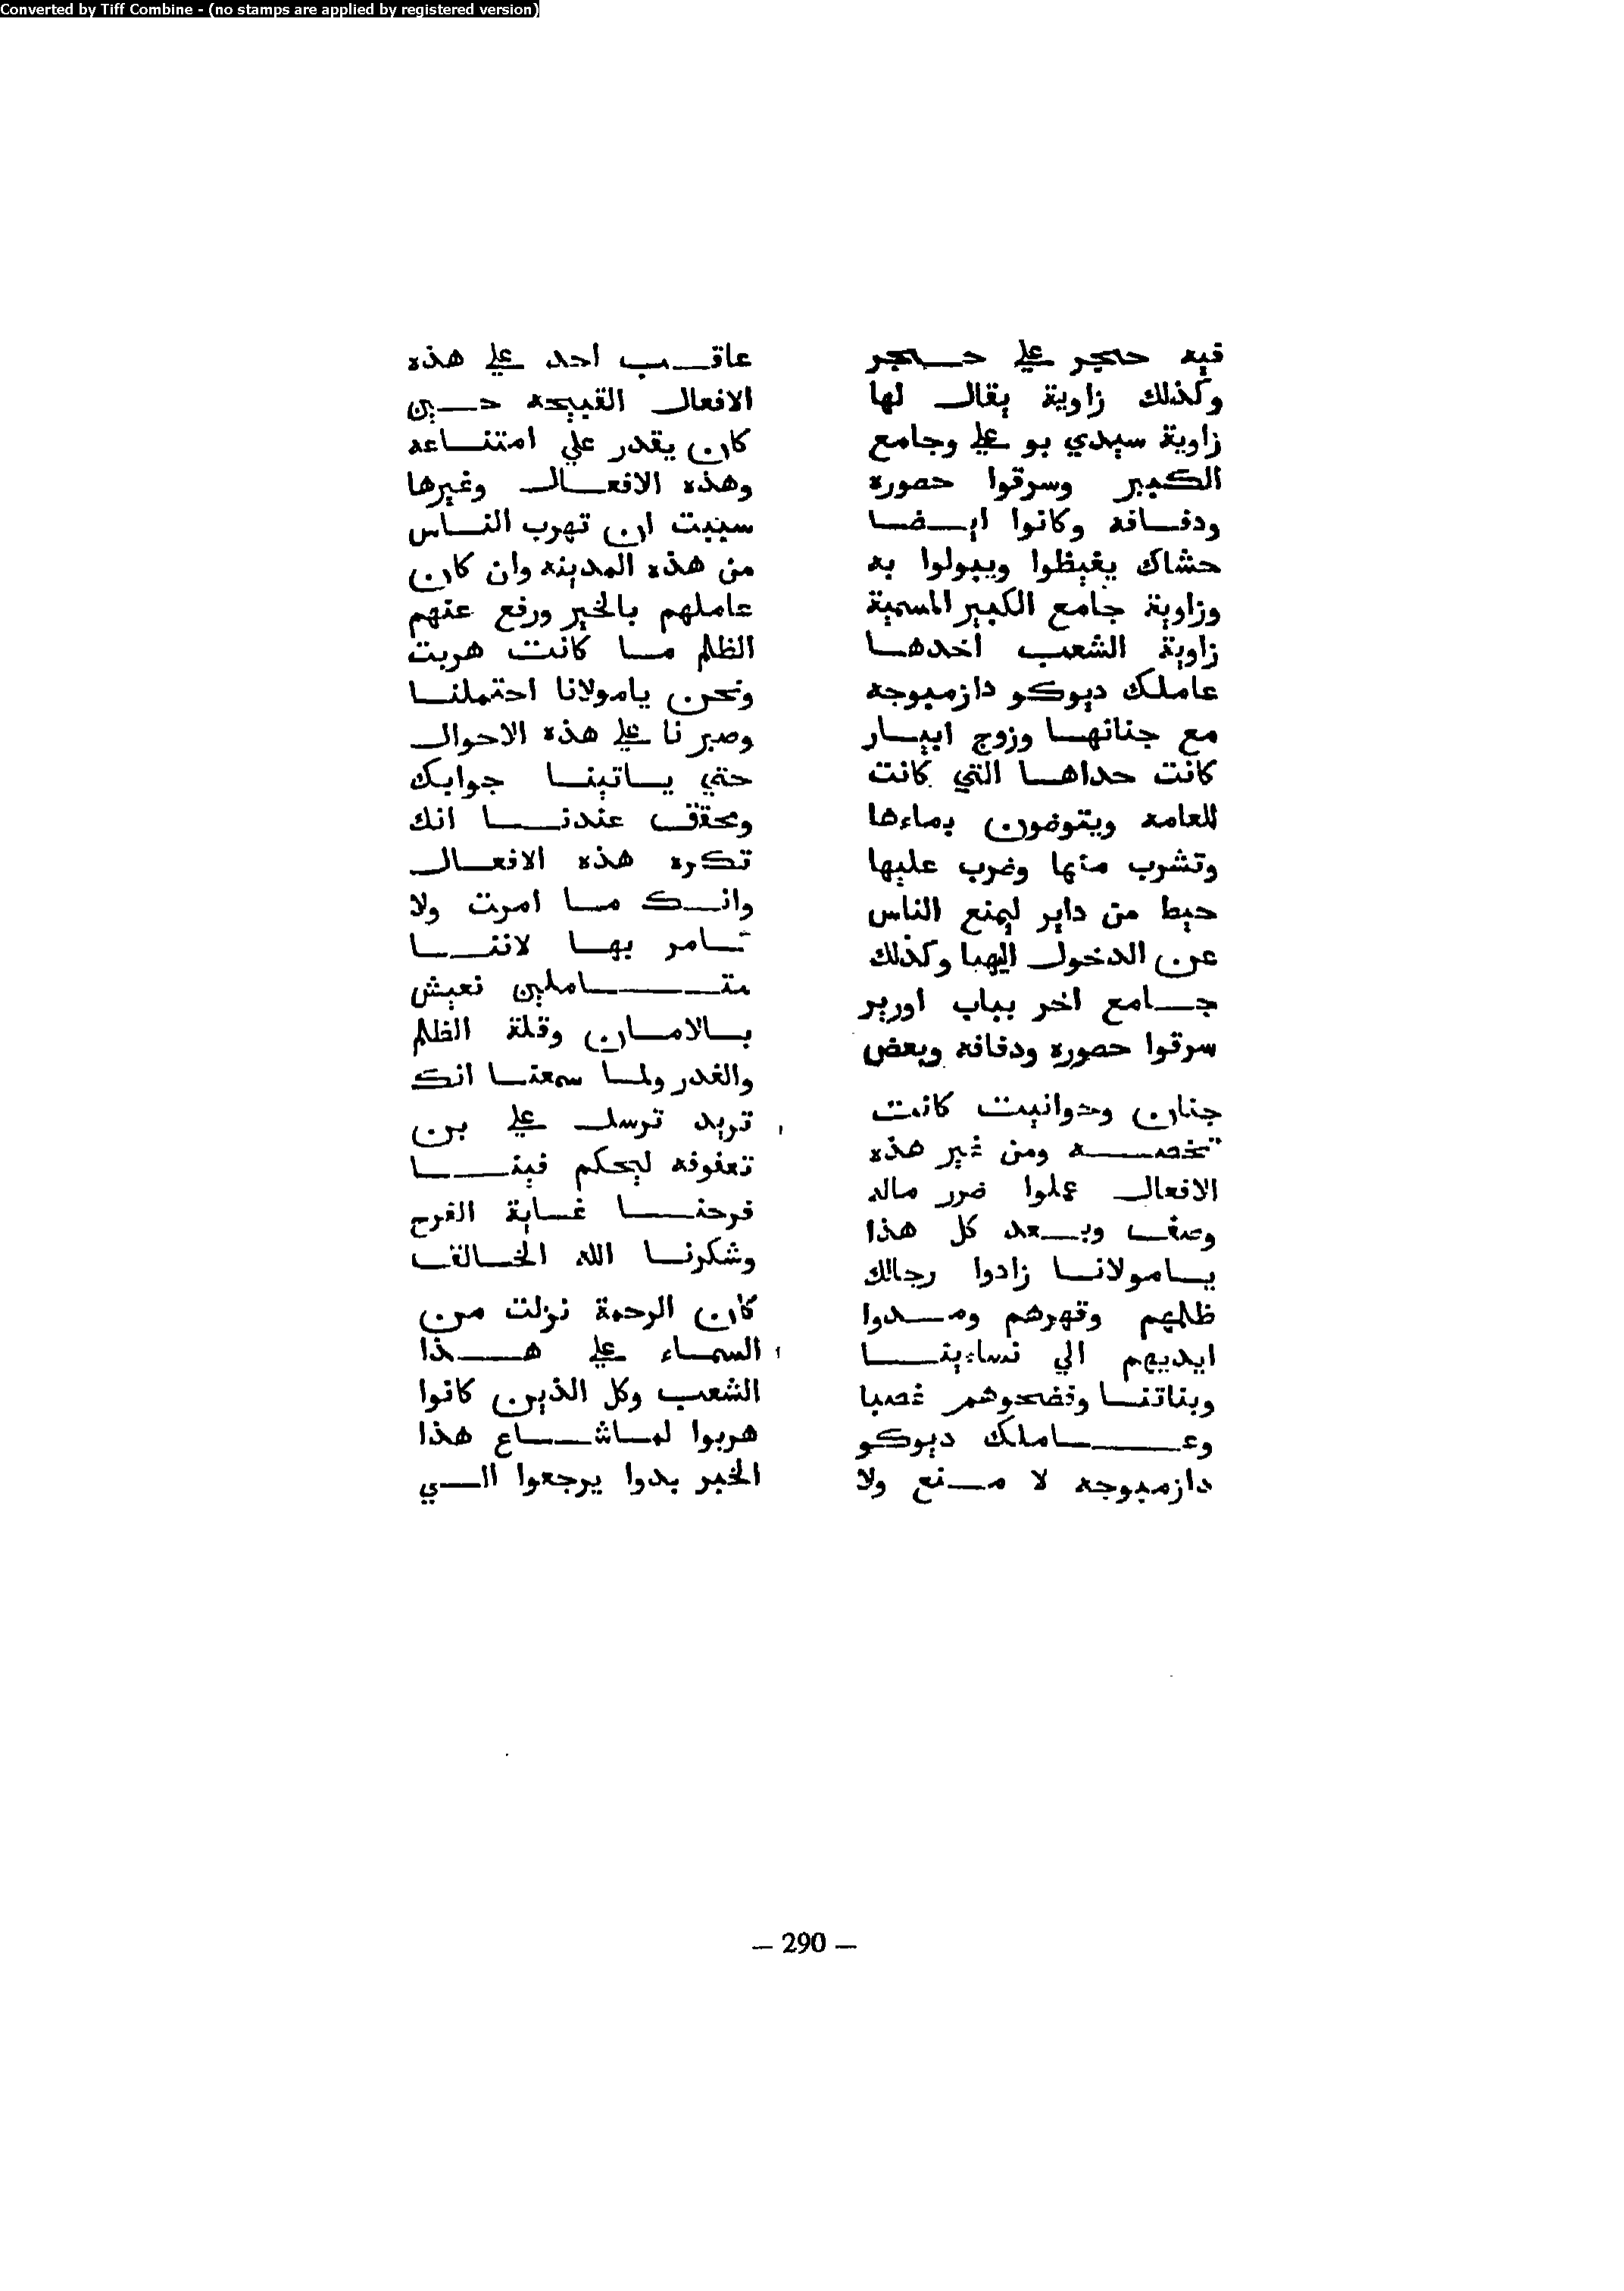 Converted by Tiff Combine - (no stamps are applied by registered version)
فيه حجر علي حجر
وكذلك زاوية يقال لها
زاوية سيدي بو علي وجامع
الكبير وسرقوا حصوره
ودفافه وكانوا ايضا
حشاك يغيظوا ويبولوا به
وزاوية جامع الكبير المسمية
زاوية الشعب اخدها
عاملك ديوكو دازمبوجه
مع جنانها وزوج ابيار
كانت حداها التي كانت
للعامه ويتوضون بماءها
وتشرب منها وضرب عليها
حيط من داير ليمنع الناس
عن الدخول اليها وكذلك
جامع اخر بباب اورير
سرقوا حصوره ودفافه وبعض
جنان وحوانيت كانت
تخصه ومن غير هذه
الافعال عملوا ضرر ماله
وصف وبعد كل هذا
يامولانا زادوا رجالك
ظلمهم وقهرهم ومدوا
ايديهم الي نساءينا
وبناتنا وتفضحوهم غصبا
وعاملك ديوكو
دازمبوجه لا منع ولا
عاقب احد علي هذه
الافعال القبيحه حين
كان يقدر علي امتناعه
وهذه الافعال وغيرها
سببت ان تهرب الناس
من هذه المدينه وان كان
عاملهم بالخير ورفع عنهم
الظلم ما كانت هربت
ونحن يامولانا احتملنا
وصبرنا علي هذه الاحوال
حتي ياتينا جوابك
ومحقق عندنا انك
تكره هذه الافعال
وانك ما امرت ولا
تامر بها لاننا
متاملين نعيش
بالامان وقلة الظلم
والغدر ولما سمعنا انك
تريد ترسل علي بن
تعفوفه ليحكم فينا
فرحنا غاية الفرح
وشكرنا الله الخالق
كان الرحمة نزلت من
السماء علي هذا
الشعب وكل الذين كانوا
هربوا لماشاع هذا
الخبر بدوا يرجعوا الي
— 290 —